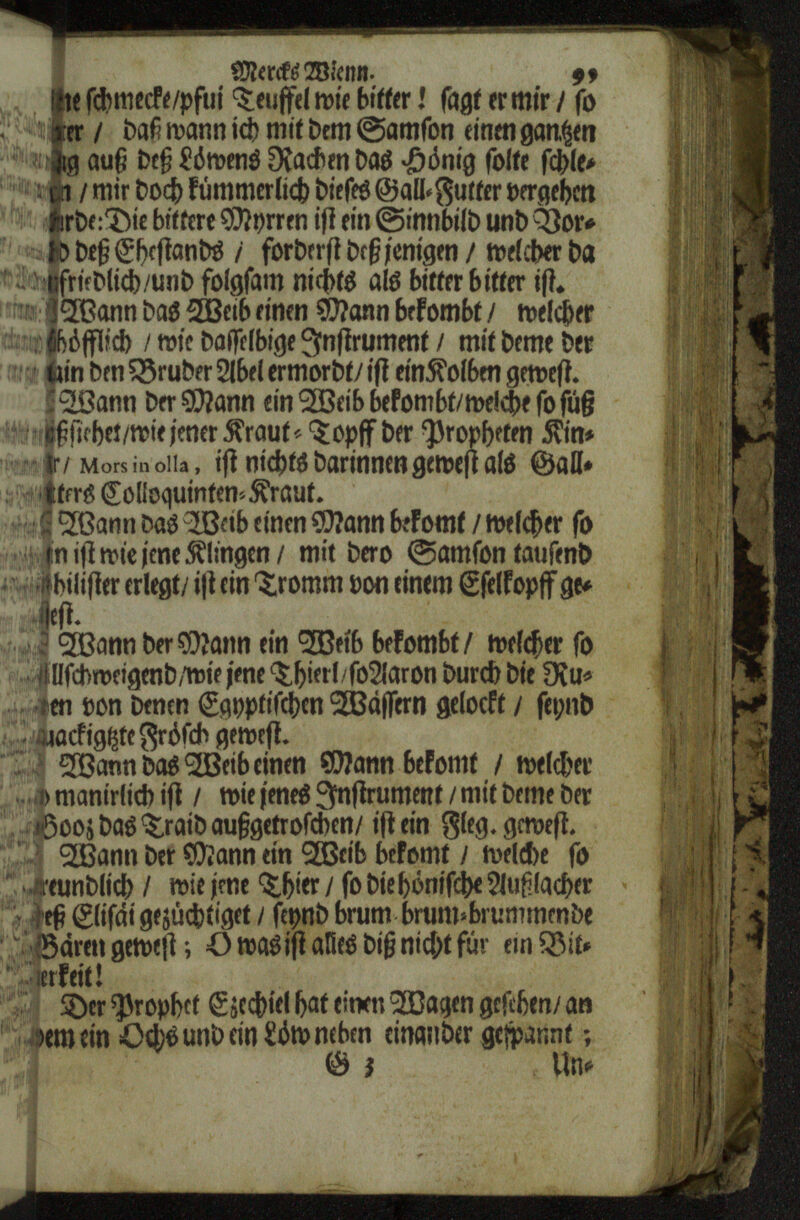 Mercks Wienn. 99
ne schmecke/pfui Teuffel wie bitter! sagt er mir / so
ter / daß wann ich mit dem Samson einen gantzen
ig auß deß Löwens Rachen das Hönig solte schle-
en / mir doch kümmerlich dieses Gall-Futter vergehen
ürde: Die bittere Myrren ist ein Sinnbild und Vor-
d deß Ehestands / forderst deß jenigen / welcher da
friedlich/und folgsam nichts als bitter bitter ist.
Wann das Weib einen Mann bekombt / welcher
höfflich / wie dasselbige Instrument / mit deme der
ain den Bruder Abel ermordt/ ist ein Kolben gewest.
Wann der Mann ein Weib bekombt/welche so süß
ßsiehet/wie jener Kraut-Topff der Propheten Kin-
r/ Mors in olla, ist nichts darinnen gewest als Gall-
ters Colloquinten-Kraut.
Wann das Weib einen Mann bekomt / welcher so
n ist wie jene Klingen / mit dero Samson tausend
hilister erlegt/ ist ein Tromm von einem Eselkopff ge-
est.
Wann der Mann ein Weib bekombt / welcher so
llschweigend/wie jene Thierl/so Aaron durch die Ru-
en von denen Egyptischen Wässern gelockt / seynd
uackigtzte Frösch gewest.
Wann das Weib einen Mann bekomt / welcher
manirlich ist / wie jenes Instrument / mit deme der
Booz das Traid außgetroschen/ ist ein Fleg. gewest.
Wann der Mann ein Weib bekomt / welche so
reundlich / wie jene Thier / so die hönische Außlacher
eß Elisäi gezüchtiget / seynd brum brum-brummende
Bären gewest; O was ist alles diß nicht für ein Bit-
erkeit!
Der Prophet Ezechiel hat einen Wagen gesehen/ an
dem ein Ochs und ein Löw neben einander gespannt;
G 3 Un-